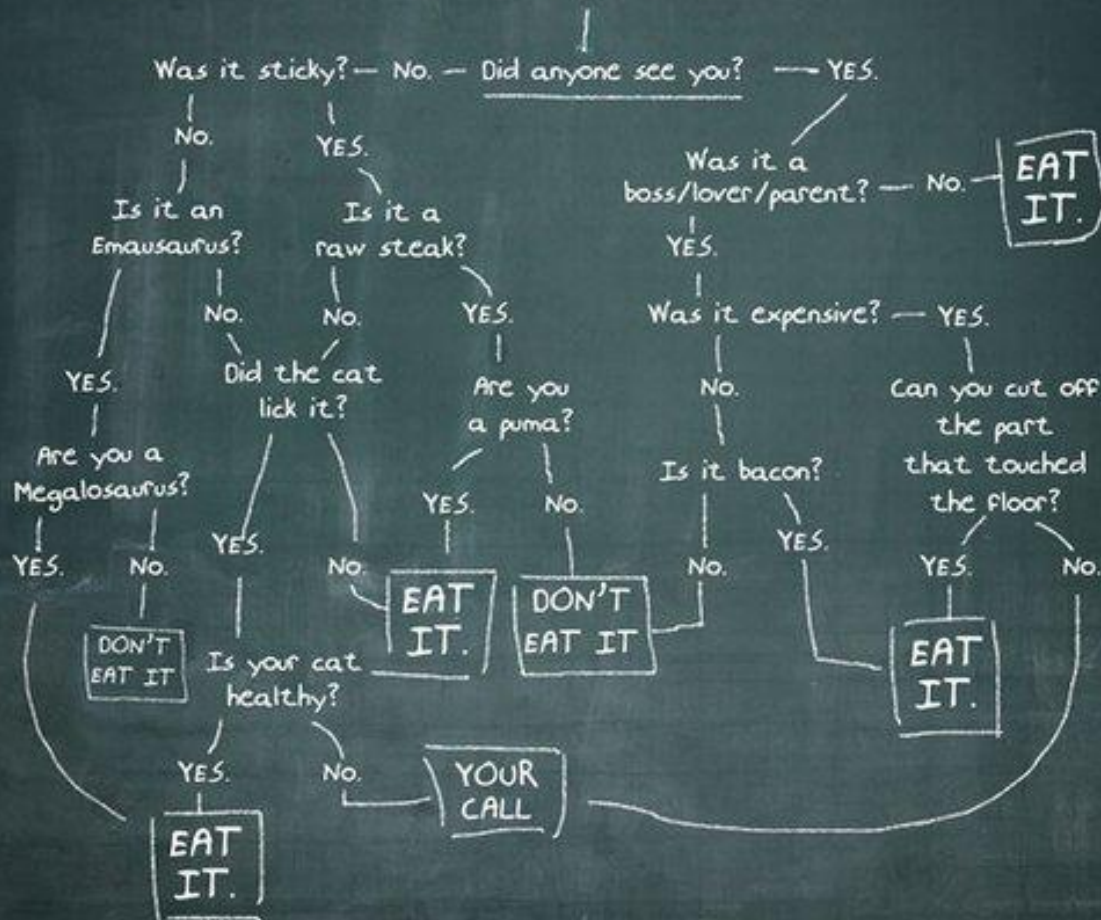 Was it sticky? — No. — Did anyone see you? — YES.
No.
YES.
Was it a
boss/lover/parent? — No. —
EAT
IT.
Is it an
Emausaurus?
Is it a
raw steak?
YES.
No.
No.
YES.
Was it expensive? — YES.
YES.
Did the cat
lick it?
Are you
a puma?
No.
Can you cut off
the part
that touched
the floor?
Are you a
Megalosaurus?
Is it bacon?
YES.
No.
YES.
No.
YES.
No.
YES.
No.
YES.
No.
DON'T
EAT IT
EAT
IT.
DON'T
EAT IT
EAT
IT.
Is your cat
healthy?
YES.
No.
YOUR
CALL
EAT
IT.